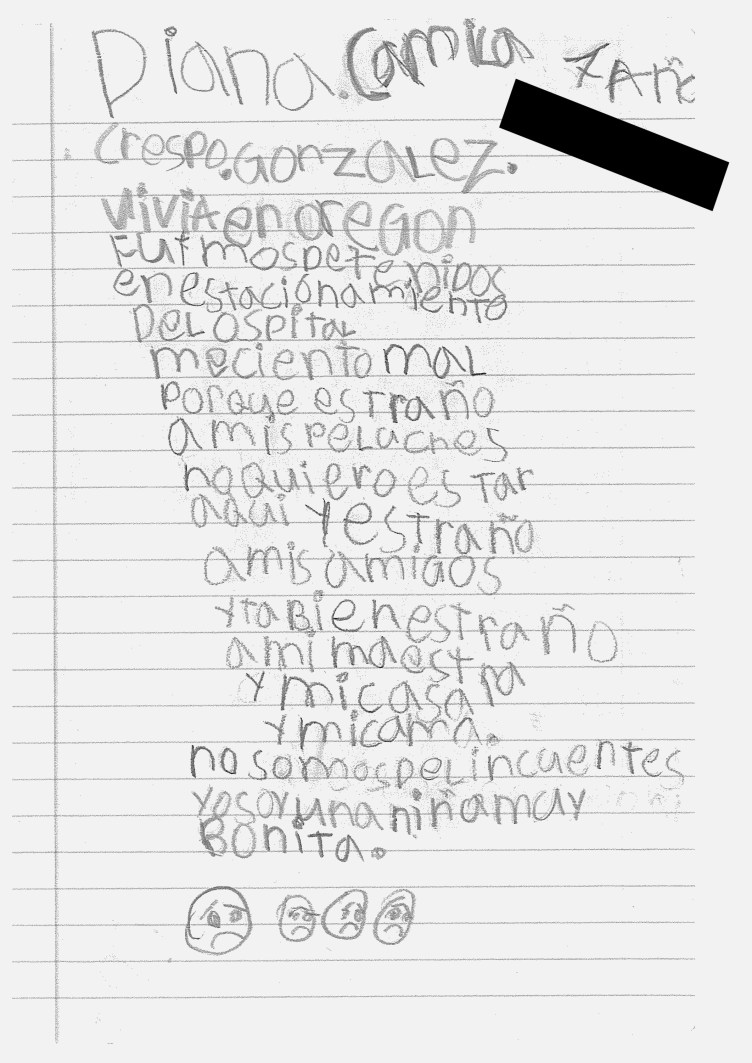 Diana. Camila 7 Añ
Crespo. GONZALEZ.
VIVIA en OREGON
FUIMOS DETENIDOS
en estaciónamiento
DeL OSPITAL
meciento maL
PORque estraño
a mis peLuches
no quiero estar
aqui Y estraño
a mis amigos
Y taBien estraño
a mi maestra
Y mi casa
Y mi cama.
no somos DeLincuentes
YO SOY una niña muy
BONITA.